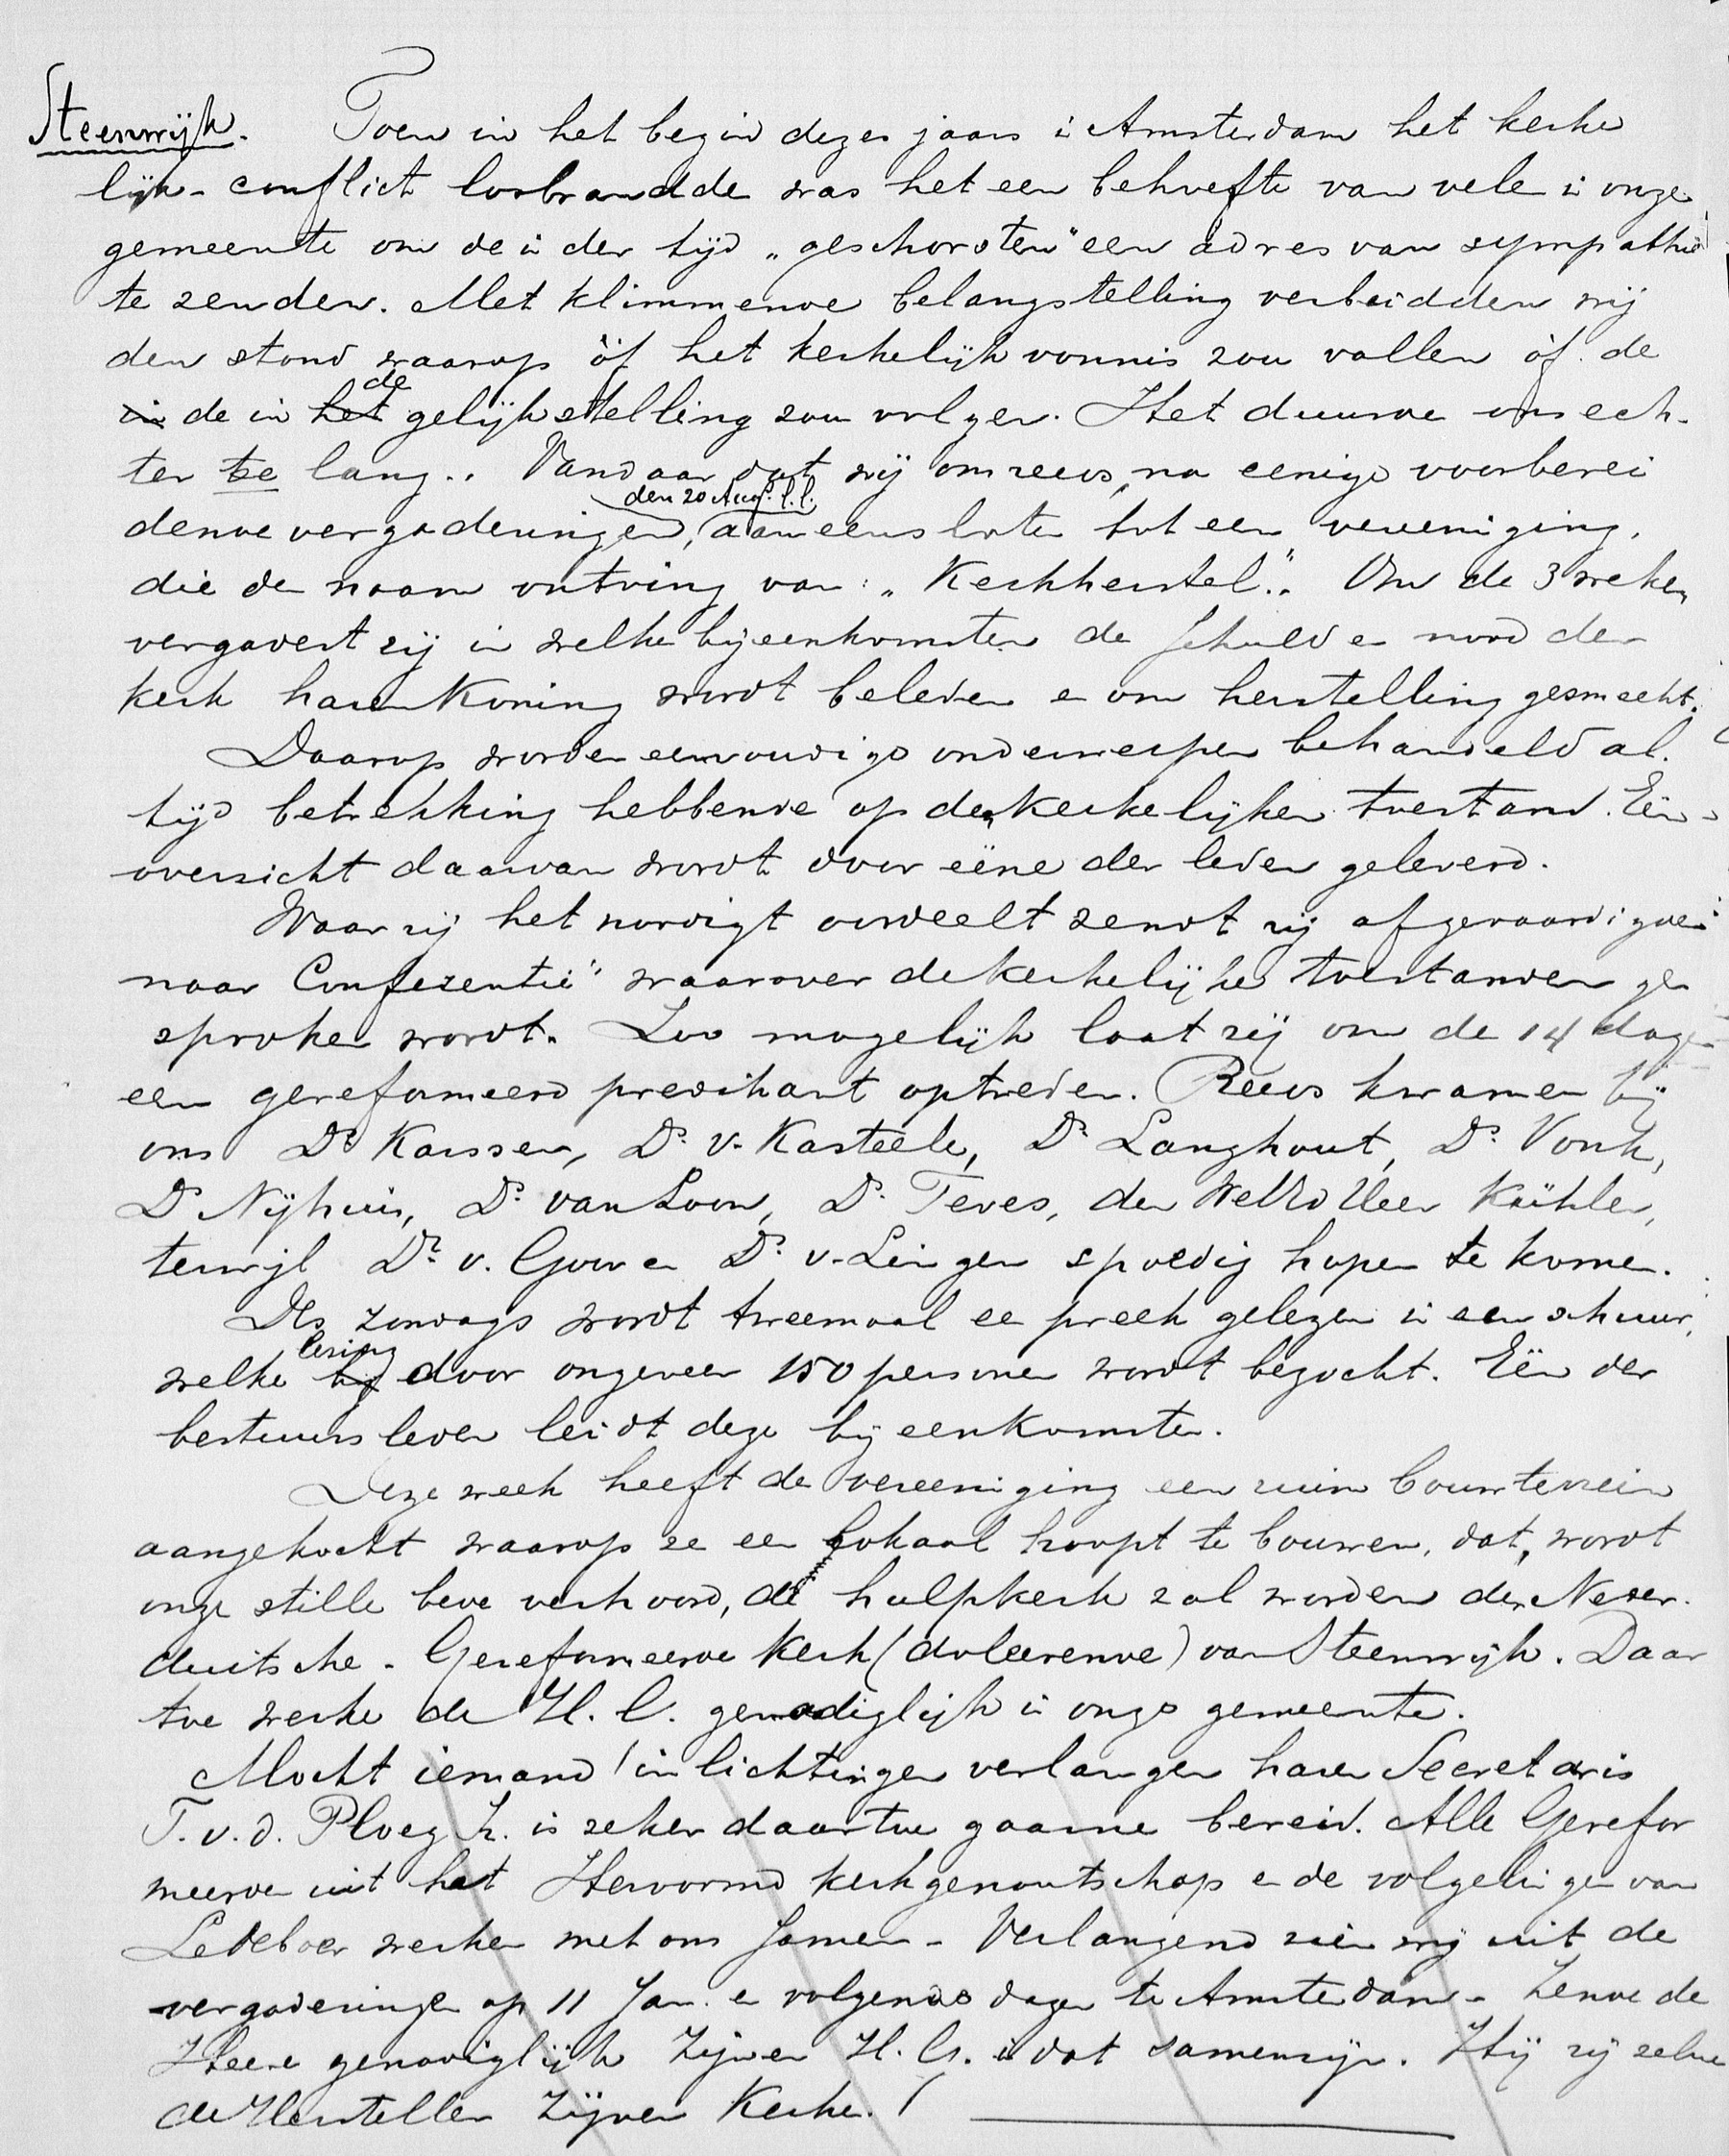 Steenwijk. Toen in het begin dezes jaars in Amsterdam het kerke
lijk-conflict losbrandde was het een behoefte van velen in onze
gemeente om de in der tijd „geschorsten" een adres van sympathie
te zenden. Met klimmende belangstelling verbeidden wij
den stond waarop òf het kerkelijk vonnis zou vallen òf de
in de in het de gelijkstelling zou volgen. Het duurde ons ech-
ter te lang. Vandaar dat wij ons reeds, na eenige voorberei
dende vergaderingen, den 20 Aug. l.l. aaneensloten tot een vereeniging,
die den naam ontving van: „Kerkherstel". Om de 3 weken
vergadert zij in welke bijeenkomsten de schuld en nood der
kerk haren Koning wordt beleden en om herstelling gesmeekt.
Daarop worden eenvoudige onderwerpen behandeld al-
tijd betrekking hebbende op den kerkelijken toestand. Een
overzicht daarvan wordt door eene der leden geleverd.
Waar zij het noodigt oordeelt zendt zij afgevaardigden
naar Conferentie's waarover de kerkelijke toestanden ge
sproken wordt. Zoo mogelijk laat zij om de 14 dagen
een gereformeerd predikant optreden. Reeds kwamen bij
ons Ds. Karssen, Ds. v. Kasteele, Ds. Langhout, Ds. Vonk,
Ds. Nijhuis, Ds. van Loon, Ds. Teves, den WelEd Heer Kähler,
terwijl Dr. v. Goor en Ds. v. Lingen spoedig hopen te komen.
Des Zondags wordt tweemaal een preek gelezen in een schuur,
welke bij lezing door ongeveer 150 personen wordt bezocht. Eén der
bestuursleden leidt deze bijeenkomsten.
Deze week heeft de vereeniging een ruim bouwterrein
aangekocht waarop ze een lokaal hoopt te bouwen, dat, wordt
onze stille bede verhoord, de hulpkerk zal worden der Neder-
duitsche-Gereformeerde Kerk (doleerende) van Steenwijk. Daar
toe werke de H. G. genadiglijk in onze gemeente.
Mocht iemand inlichtingen verlangen haren Secretaris
T. v. d. Ploeg Jz. is zeker daartoe gaarne bereid. Alle Gerefor
meerden uit het Hervormd kerkgenootschap en de volgelingen van
Ledeboer werken met ons samen. Verlangend zien wij uit de
vergaderingen op 11 Jan. en volgende dagen te Amsterdam. Zende de
Heere genadiglijk Zijnen H. G. in dat samenzijn. Hij zij zelve
de Hersteller Zijner Kerke.